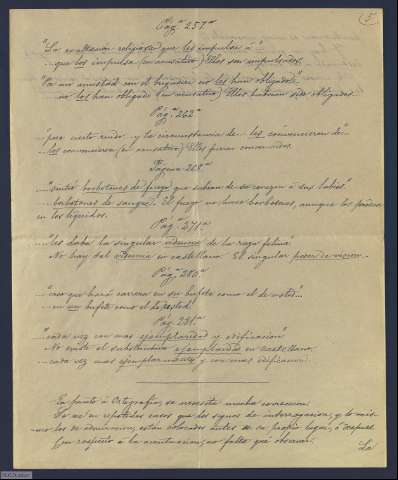 5
Pág.ª 257ª
"La exaltación religiosa que les impulsa á"
...que los impulsa (en acusativo) Ellos son impulsados.
"Ya mi amistad con el brigadier no les han obligado"...
...no los han obligado (en acusativo) Ellos habrían sido obligados.
Pág.ª 262ª
..."pero cierto ruido y la circunstancia de... les convencieron de"...
...los convencieron (en acusativo) Ellos fueron convencidos.
Página 268ª
..."sintió borbotones de fuego que subían de su corazón á sus labios."
..."borbotones de sangre". El fuego no hace borbotones, aunque los produce
en los líquidos.
Pág.ª 271ª
..."les daba la singular videncia de la raza felina."
No hay tal videncia en castellano. El singular poder de visión.
Pág.ª 280ª
..."creo que hará carrera en su bufete como el de usted"...
...en un bufete como el de usted.
Pág. 281ª
..."cada vez con mas ejemplaridad y edificación"
No existe el substantivo ejemplaridad en castellano.
...cada vez mas ejemplarmente y con mas edificación.
En punto á Ortografía, se necesita mucha corrección.
Ya en repetidos casos que los signos de interrogación, y lo mis-
mo los de admiración, están colocados antes de su propio lugar, ó despues.
Con respecto á la acentuación, no falta qué observar.
La